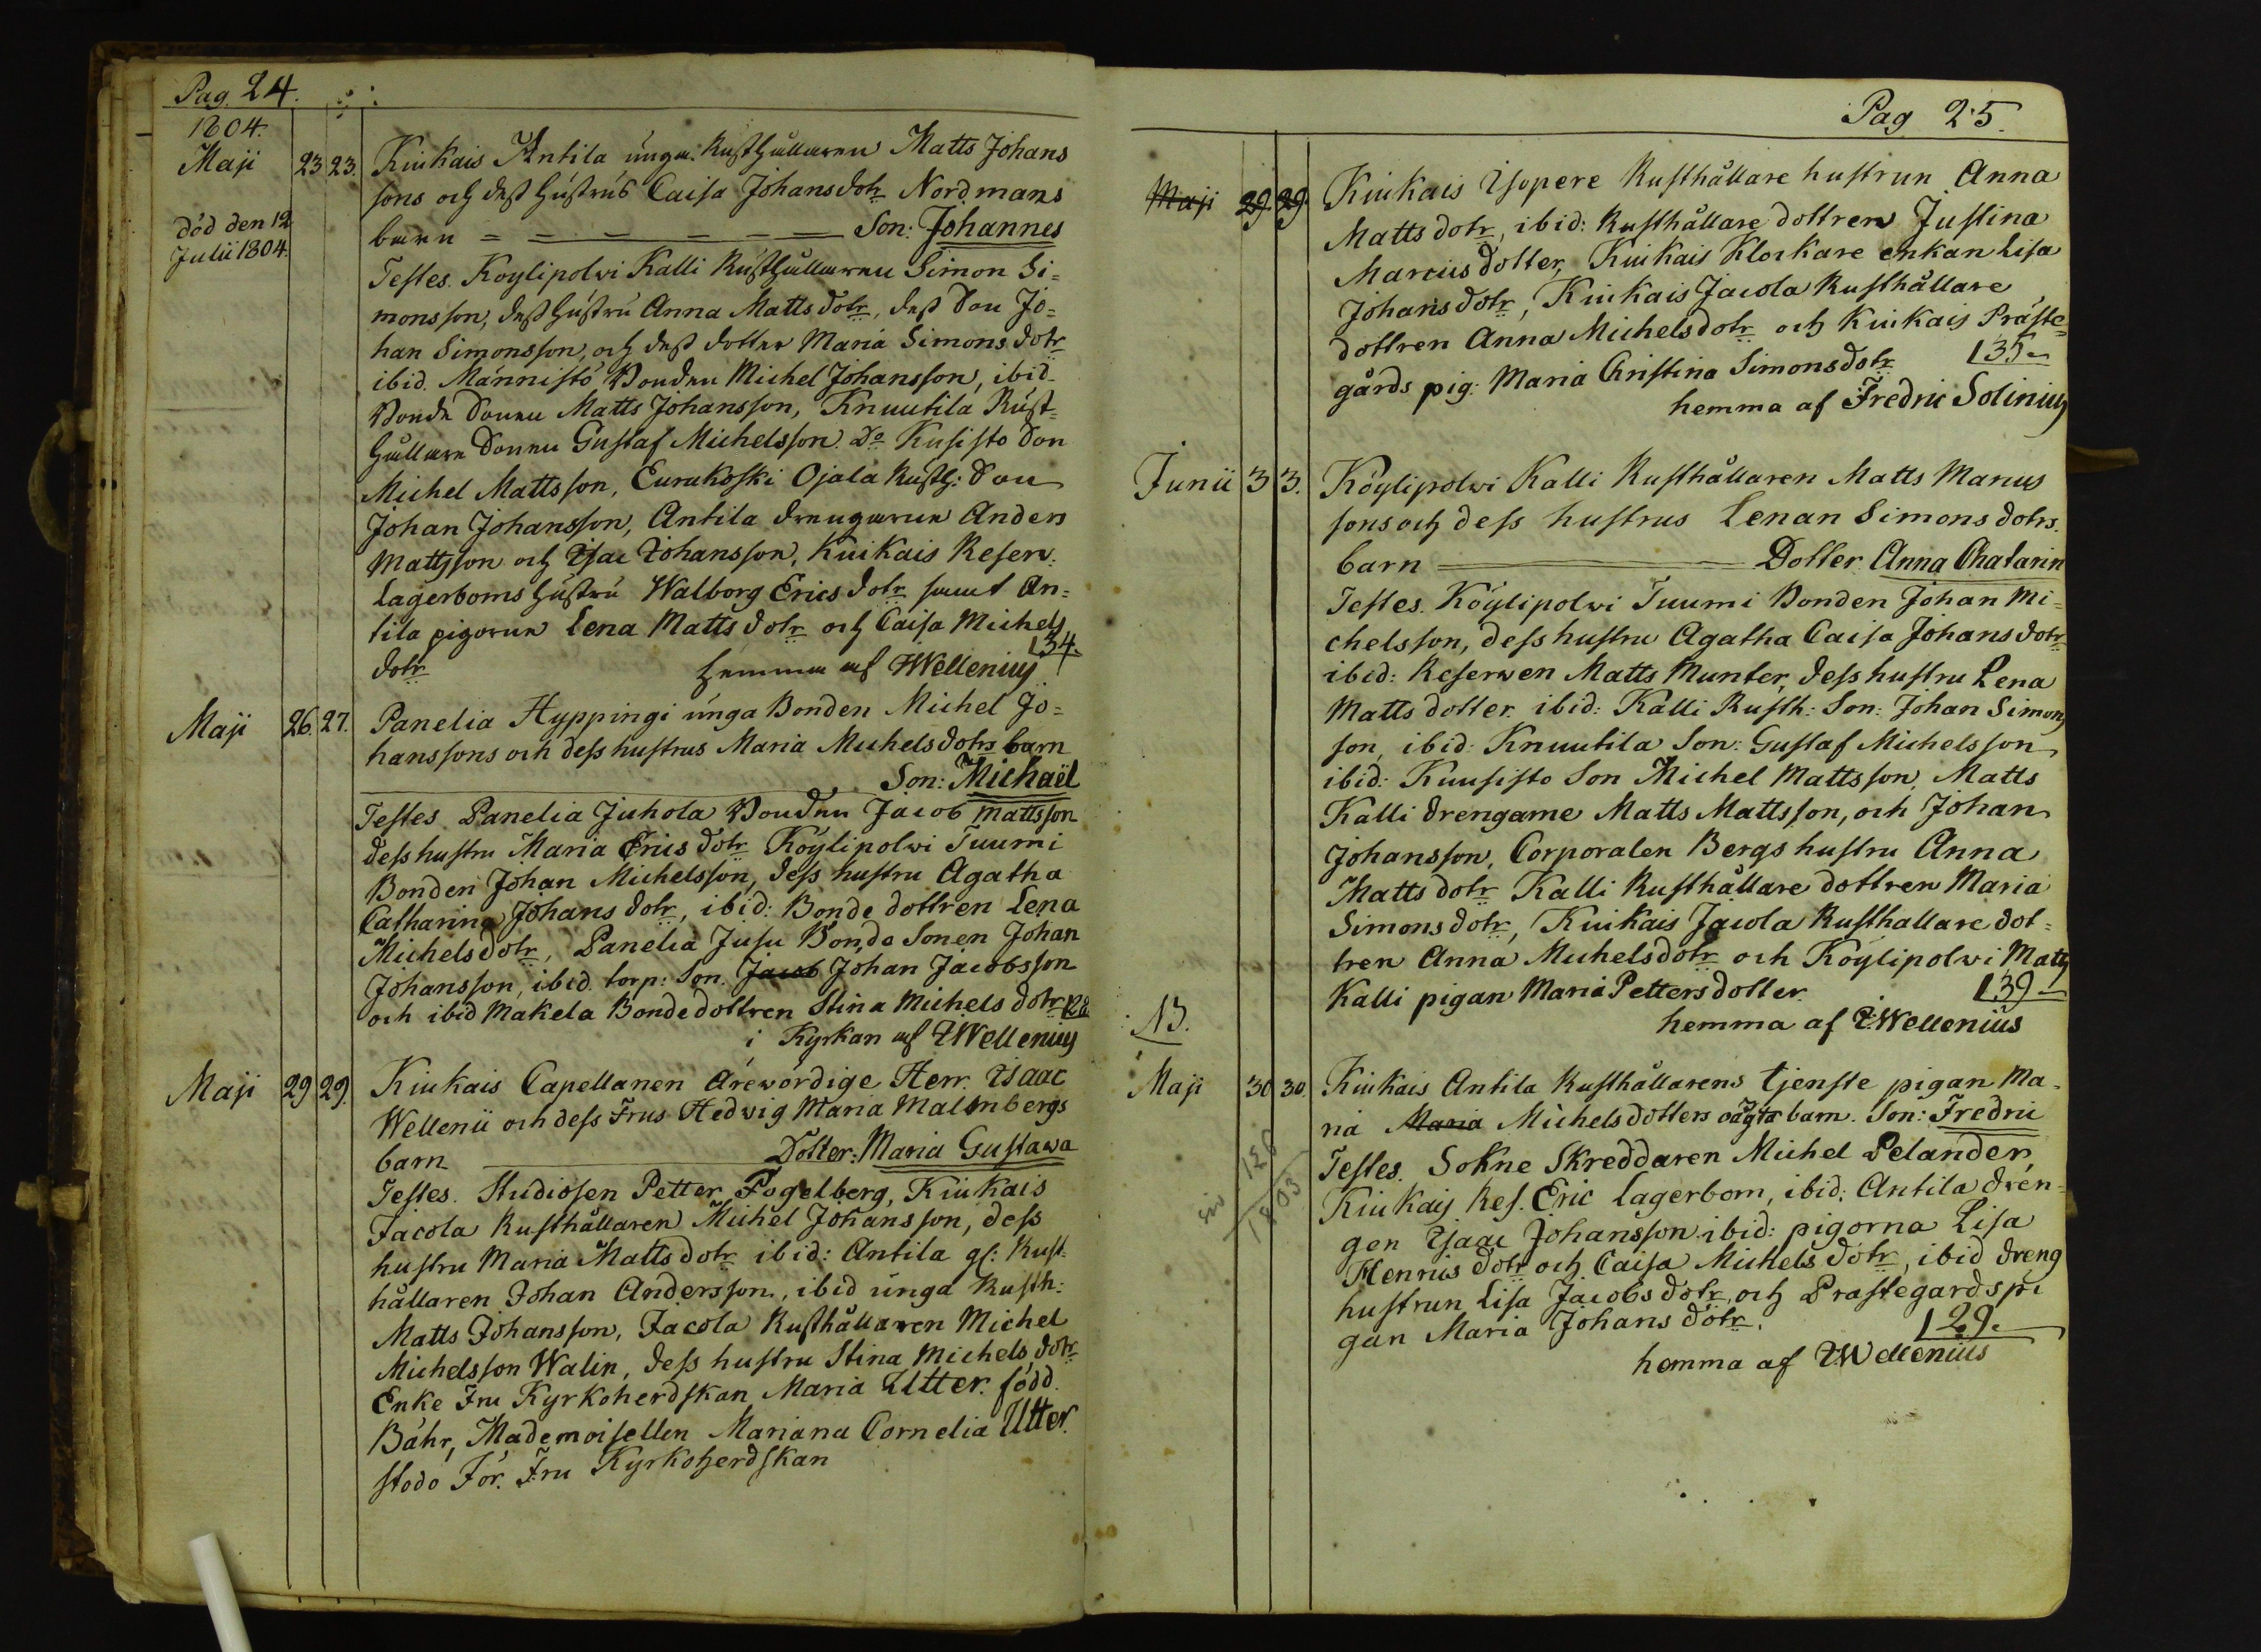 Pag. 24.
1804.
Maji 23 23. Kiukais Antila unga Rusthållaren Matts Johans
sons och dess hustrus Caisa Johansdotr Nordmans
barn = = = = = = Son: Johannes
död den 12
Julii 1804.
Testes. Köylipolwi Kalli Rusthållaren Simon Si=
monsson, dess hustru Anna Matts dotr, dess Son Jo=
han Simonsson, och dess dotter Maria Simons dotr
ibid. Männistö Bonden Michel Johansson, ibid
Bonde Sonen Matts Johansson, Knuutila Rust=
hållare Sonen Gustaf Michelsson. Do Kusisto Son
Michel Mattsson, Eurakoski Ojala Rusth: Son
Johan Johansson, Antila drengarne Anders
Mattsson och Isac Johansson, Kiukais Reserv.
Lagerboms hustru Walborg Erics dotr samt An=
tila pigorne Lena Matts dotr och Caisa Michels
dotr hemma af IWellenius 134.
Maji 26. 27. Panelia Hyppingi unga Bonden Michel Jo=
hanssons och dess hustrus Maria Michelsdotrs barn
Son: Michaël
Testes Panelia Juhola Bonden Jacob Mattsson
dess hustru Maria Erics dotr Köylipolwi Tuumi
Bonden Johan Michelsson, dess hustru Agatha
Catharina Johans dotr, ibid: Bonde dottren Lena
Michelsdotr, Panelia Jusu Bonde Sonen Johan
Johansson, ibid. torp: Son. Jacob Johan Jacobsson
och ibid Makela Bondedottren Stina Michels dotr 128
i Kyrkan af IWellenius
Maji 29 29. Kiukais Capellanen Ärewördige Herr. Isaac
Wellenii och dess Frus Hedvig Maria Malmbergs
barn Dotter: Maria Gustawa
Testes. Studiosen Petter Fogelberg, Kiukais
Jacola Rusthållaren Michel Johansson, dess
hustru Maria Matts dotr ibid: Antila gl: Rust=
hållaren Johan Andersson, ibid unga Rusth:
Matts Johansson, Jacola Rusthållaren Michel
Michelsson Walin, dess hustru Stina Michels dotr
Enke Fru Kyrkoherdskan Maria Utter. född.
Bähr, Mademoisellen Mariana Cornelia Utter.
stodo För. Fru Kyrkoherdskan
Pag 25.
Maji 29. 29. Kiukais Isopere Rusthållare hustrun Anna
Matts dotr, ibid: Rusthållare dottren Justina
Marcus dotter, Kiukais Klockare enkan Lisa
Johans dotr, Kiukais Jacola Rusthållare
dottren Anna Michelsdotr och Kiukais Präste=
gårds pig: Maria Christina Simonsdotr 135
hemma af Fredric Solinius
Junii 3 3. Köylipolwi Kalli Rusthållaren Matts Marcus
sons och dess hustrus Lenan Simons dotrs.
barn Dotter Anna Chatarin
Testes. Köylipolwi Tuumi Bonden Johan Mi=
chelsson, dess hustru Agatha Caisa Johansdotr
ibid: Reserven Matts Munter, dess hustru Lena
Matts dotter. ibid: Kalli Rusth: Son: Johan Simons
son, ibid: Knuutila Son: Gustaf Michelsson
ibid: Kuusisto Son Michel Mattsson, Matts
Kalli drengarne Matts Mattsson, och Johan
Johansson, Corporalen Bergs hustru Anna
Matts dotr Kalli Rusthållare dottren Maria
Simons dotr, Kiukais Jacola Rusthallare dot=
tren Anna Michelsdotr och Köylipolwi Matts
Kalli pigan Maria Pettersdotter. 139
hemma af IWellenius
NB.
Maji 30 30. Kiukais Antila Rusthållarens tjenste pigan Ma=
ria Maria Michelsdotters oägta barn. Son: Fredric
Testes. Sokne Skreddaren Michel Pelander,
Kiukais Res. Eric Lagerbom, ibid: Antila dren=
gen Isaac Johansson ibid: pigorna Lisa
Henrics dotr och Caisa Michels dotr, ibid dreng
hustrun Lisa Jacobs dotr, och Prastegards pi
gan Maria Johans dotr. 129.
hemma af IWellenius